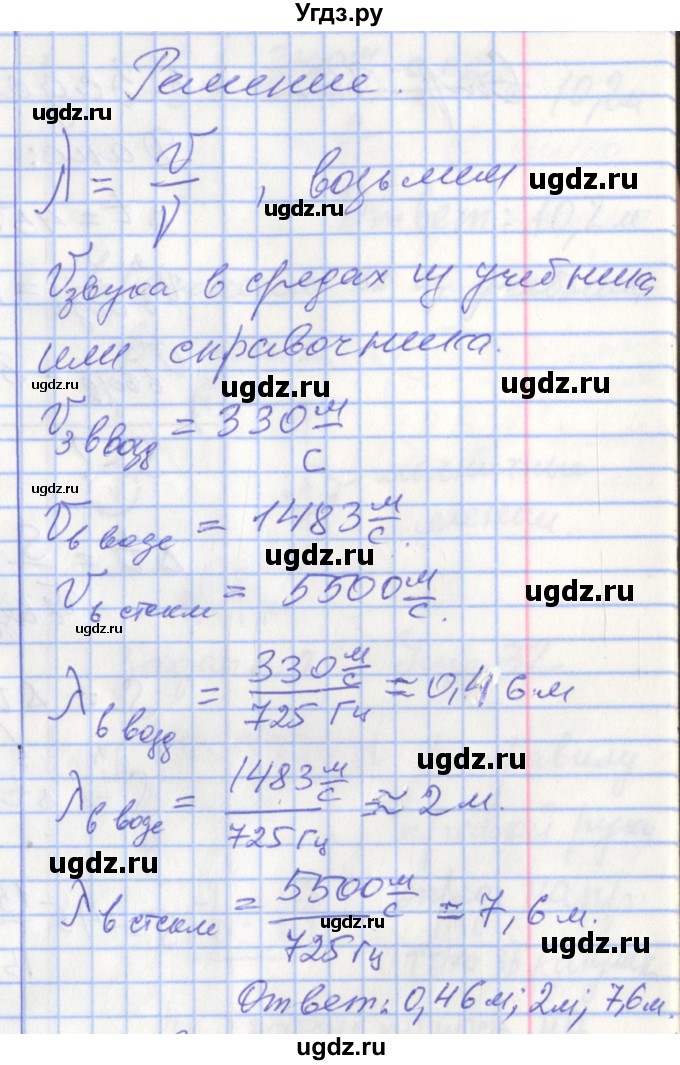 Угдз.ру
Решение.
ugdz.ru
λ = V/ν, возьмем
ugdz.ru
ugdz.ru
Vзвука в средах из учебника,
или справочника.
ugdz.ru
ugdz.ru
ugdz.ru
Vз в возд = 330 м/с
ugdz.ru
Vв воде = 1483 м/с.
ugdz.ru
Vв стекл = 5500 м/с.
ugdz.ru
ugdz.ru
λв возд = 330 м/с / 725 Гц ≈ 0,46 м
ugdz.ru
λв воде = 1483 м/с / 725 Гц ≈ 2 м.
ugdz.ru
ugdz.ru
λв стекле = 5500 м/с / 725 Гц = 7,6 м.
ugdz.ru
Ответ: 0,46 м; 2 м; 7,6 м.
ugdz.ru